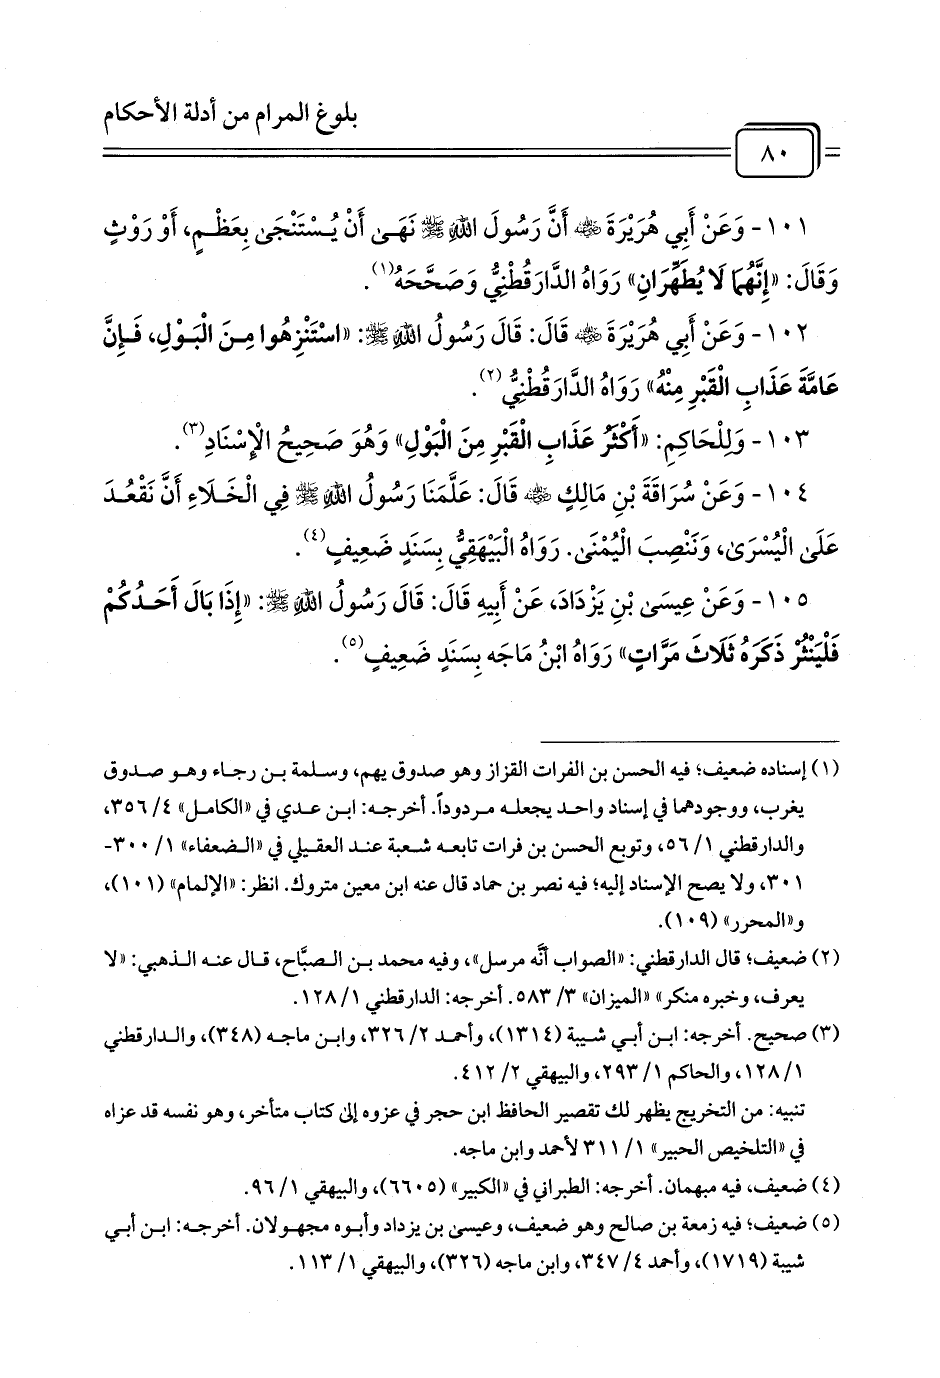 بلوغ المرام من أدلة الأحكام
٨٠
١٠١- وَعَنْ أَبِي هُرَيْرَةَ ﵁ أَنَّ رَسُولَ اللهِ ﷺ نَهَى أَنْ يُسْتَنْجَى بِعَظْمٍ، أَوْ رَوْثٍ
وَقَالَ: «إِنَّهُمَا لَا يُطَهِّرَانِ» رَوَاهُ الدَّارَقُطْنِيُّ وَصَحَّحَهُ(١).
١٠٢- وَعَنْ أَبِي هُرَيْرَةَ ﵁ قَالَ: قَالَ رَسُولُ اللهِ ﷺ: «اسْتَنْزِهُوا مِنَ الْبَوْلِ، فَإِنَّ
عَامَّةَ عَذَابِ الْقَبْرِ مِنْهُ» رَوَاهُ الدَّارَقُطْنِيُّ(٢).
١٠٣- وَلِلْحَاكِمِ: «أَكْثَرُ عَذَابِ الْقَبْرِ مِنَ الْبَوْلِ» وَهُوَ صَحِيحُ الْإِسْنَادِ(٣).
١٠٤- وَعَنْ سُرَاقَةَ بْنِ مَالِكٍ ﵁ قَالَ: عَلَّمَنَا رَسُولُ اللهِ ﷺ فِي الْخَلَاءِ أَنَّ نَقْعُدَ
عَلَى الْيُسْرَى، وَنَنْصِبَ الْيُمْنَى. رَوَاهُ الْبَيْهَقِيُّ بِسَنَدٍ ضَعِيفٍ(٤).
١٠٥- وَعَنْ عِيسَى بْنِ يَزْدَادَ، عَنْ أَبِيهِ قَالَ: قَالَ رَسُولُ اللهِ ﷺ: «إِذَا بَالَ أَحَدُكُمْ
فَلْيَنْثُرْ ذَكَرَهُ ثَلَاثَ مَرَّاتٍ» رَوَاهُ ابْنُ مَاجَه بِسَنَدٍ ضَعِيفٍ(٥).
(١) إسناده ضعيف؛ فيه الحسن بن الفرات القزاز وهو صدوق يهم، وسلمة بن رجاء وهو صدوق
يغرب، ووجودهما في إسناد واحد يجعله مردوداً. أخرجه: ابن عدي في «الكامل» ٤/ ٣٥٦،
والدارقطني ١/ ٥٦، وتوبع الحسن بن فرات تابعه شعبة عند العقيلي في «الضعفاء» ١/ ٣٠٠-
٣٠١، ولا يصح الإسناد إليه؛ فيه نصر بن حماد قال عنه ابن معين متروك. انظر: «الإلمام» (١٠١)،
و«المحرر» (١٠٩).
(٢) ضعيف؛ قال الدارقطني: «الصواب أنَّه مرسل»، وفيه محمد بن الصبَّاح، قال عنه الذهبي: «لا
يعرف، وخبره منكر» «الميزان» ٣/ ٥٨٣. أخرجه: الدارقطني ١/ ١٢٨.
(٣) صحيح. أخرجه: ابن أبي شيبة (١٣١٤)، وأحمد ٢/ ٣٢٦، وابن ماجه (٣٤٨)، والدارقطني
١/ ١٢٨، والحاكم ١/ ٢٩٣، والبيهقي ٢/ ٤١٢.
تنبيه: من التخريج يظهر لك تقصير الحافظ ابن حجر في عزوه إلى كتاب متأخر، وهو نفسه قد عزاه
في «التلخيص الحبير» ١/ ٣١١ لأحمد وابن ماجه.
(٤) ضعيف، فيه مبهمان. أخرجه: الطبراني في «الكبير» (٦٦٠٥)، والبيهقي ١/ ٩٦.
(٥) ضعيف؛ فيه زمعة بن صالح وهو ضعيف، وعيسى بن يزداد وأبوه مجهولان. أخرجه: ابن أبي
شيبة (١٧١٩)، وأحمد ٤/ ٣٤٧، وابن ماجه (٣٢٦)، والبيهقي ١/ ١١٣.